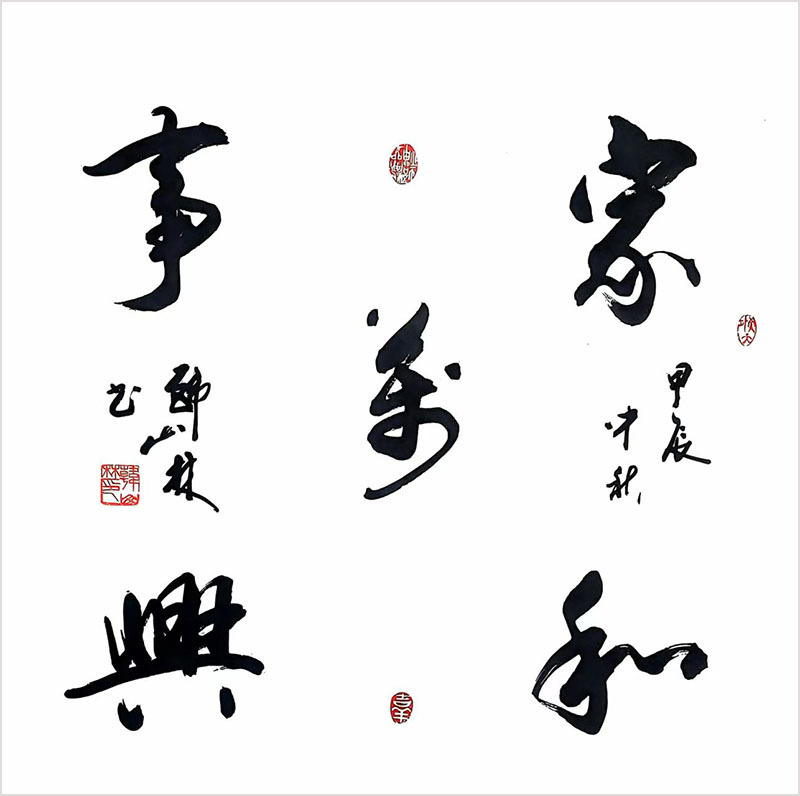 家和
甲辰
中秋
萬
事興
山林
书